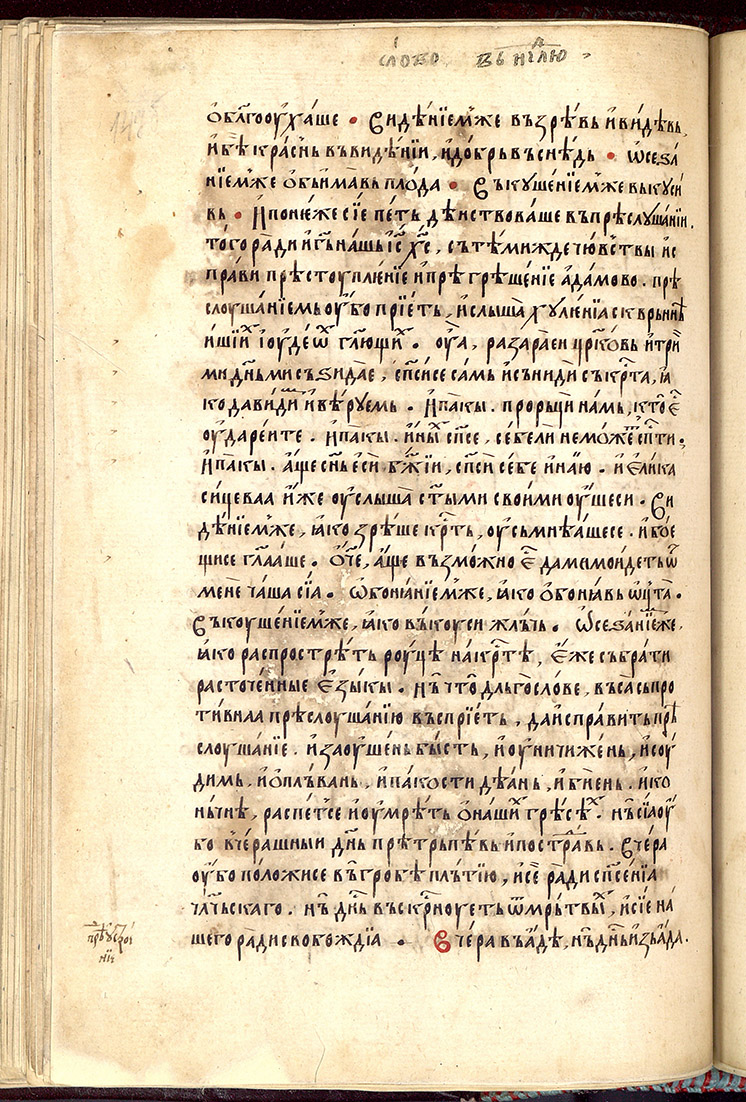 слово в҄ нⷣлю
обл҃гооуха́ше • Видѣ́нїемⸯже възрѣ́вь и҆ видѣвь,
и҆ бѣ̀ кра́сⸯнь въ видѣ́нїи, и҆ до́брь въ снѣ́дь • ѡ҆сеꙁа́
нїемⸯже о҆бьи́мавь пло́да • Въкꙋше́нїемⸯже вькꙋси́
вь • И҆ поне́же сїѐ пе́ть дѣиствова́ше въ прѣслꙋша́нїи.
то́го ра́ди и҆ гь҃ на́шь і҆с҃ х҃с, сътѣ́мижде чю́вⸯствы и҆с
пра́ви прѣстоупле́нїе и҆ прѣгрѣше́нїе а҆да́мово. прѣ
слоуша́нїемь оу҆́бо прїе́ть, и҆ слы́ша хꙋле́нїа скврьннѣ́
и҆шїиⷯ і҆оуде́ѡⷡ гл҃ющиⷯ. оу҆а̀, разара́еи цр҃ко́вь и҆ трїи
ми дн҃ьми съꙁида́е, сп҃си се са́мь и҆ сьни́ди съ крⷭ҇та, ꙗ
ко да ви́димь и҆ вѣ́рꙋемь. И҆ па́кы. прорьци́ на́мь, кто̀ е҆ⷭ
оу҆даре́и те. И҆ па́кы. и҆ны́ⷯ сп҃се, се́бе ли не мо́жеⷮ сп҃сти.
И҆ па́кы. а҆́ще сн҃ь е҆сѝ бж҃їи, сп҃си се́бе и҆ на́ю. и҆ е҆ли́ка
сицева́а и҆́же оу҆слы́ша ст҃ыми свои́ми оу҆́шеси. Ви
дѣ́нїемⸯже, ꙗ҆́ко зрѣ́ше крⷭ҇ть, оу҆сьмнѣ́аше се. и҆ бое́
щи се гл҃а́аше. О҆ч҃е, а҆́ще възмо́жно е҆ⷭ да мимои́деть ѿ
менѐ ча́ша сїа̀. Ѡ҆боня́нїемⸯже, ꙗ҆́ко о҆боня́вь ѡ҆́цта.
Въкоуше́нїемⸯже, ꙗ҆́ко въкоусѝ жль́чь. Ѡ҆сеꙁа́нїеⷨже,
ꙗ҆́ко распрострѣ́ть роу́цѣ на крⷭ҇тѣ, е҆́же събра́ти
расточе́нные е҆ꙁы́кы. нь҆ что̀ дльгосло́ве, въса̀ сьпро
ти́внаа прѣслоуша́нїю въспрїе́ть, да и҆спра́вить прѣ
слоуша́нїе. и҆ заоуше́нь бы́сть, и҆ оу҆ничиже́нь, и҆ соу
ди́мь, и҆ о҆плъ́вань, и҆ па́кости дѣ́ань, и҆ бїе́нь. и҆ ко
нь́чнѣ, распе́тсе и҆ оу҆мрѣ́ть о҆ на́шиⷯ грѣ́сѣⷯ. нь̀ сїа оу҆́
бо вче́рашныи дн҃ь прѣтрьпѣ́вь и҆ постра́вь. Вче́ра
оу҆́бо поло́жи се въ гро́бѣ пль́тїю, и҆ сѐ ра́ди сп҃се́нїа
чл҃чьскаго. нь҆ дн҃ь въскрⷭ҇ноуеть ѿ мрь́твыⷯ, и҆ сїѐ на́
шего ра́ди свобождїа • Вче́ра въ а҆́дѣ, нь҆ дн҃ьⷭ и҆зь а҆́да.